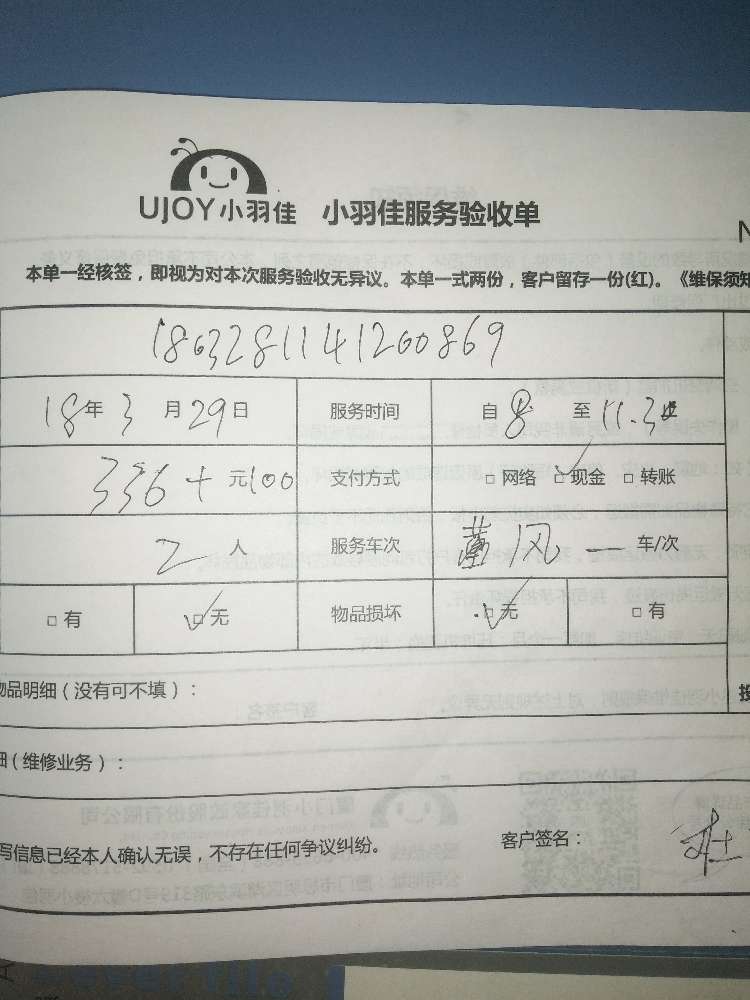 UJOY小羽佳 小羽佳服务验收单
N
本单一经核签，即视为对本次服务验收无异议。本单一式两份，客户留存一份(红)。《维保须知
1863281141200869
18年3月29日 服务时间 自8至11.30
336+元100 支付方式 □网络 □现金 □转账
2人 服务车次 董风一车/次
□有 □无 物品损坏 □无 □有
物品明细（没有可不填）：
投
细（维修业务）：
写信息已经本人确认无误，不存在任何争议纠纷。 客户签名：杜